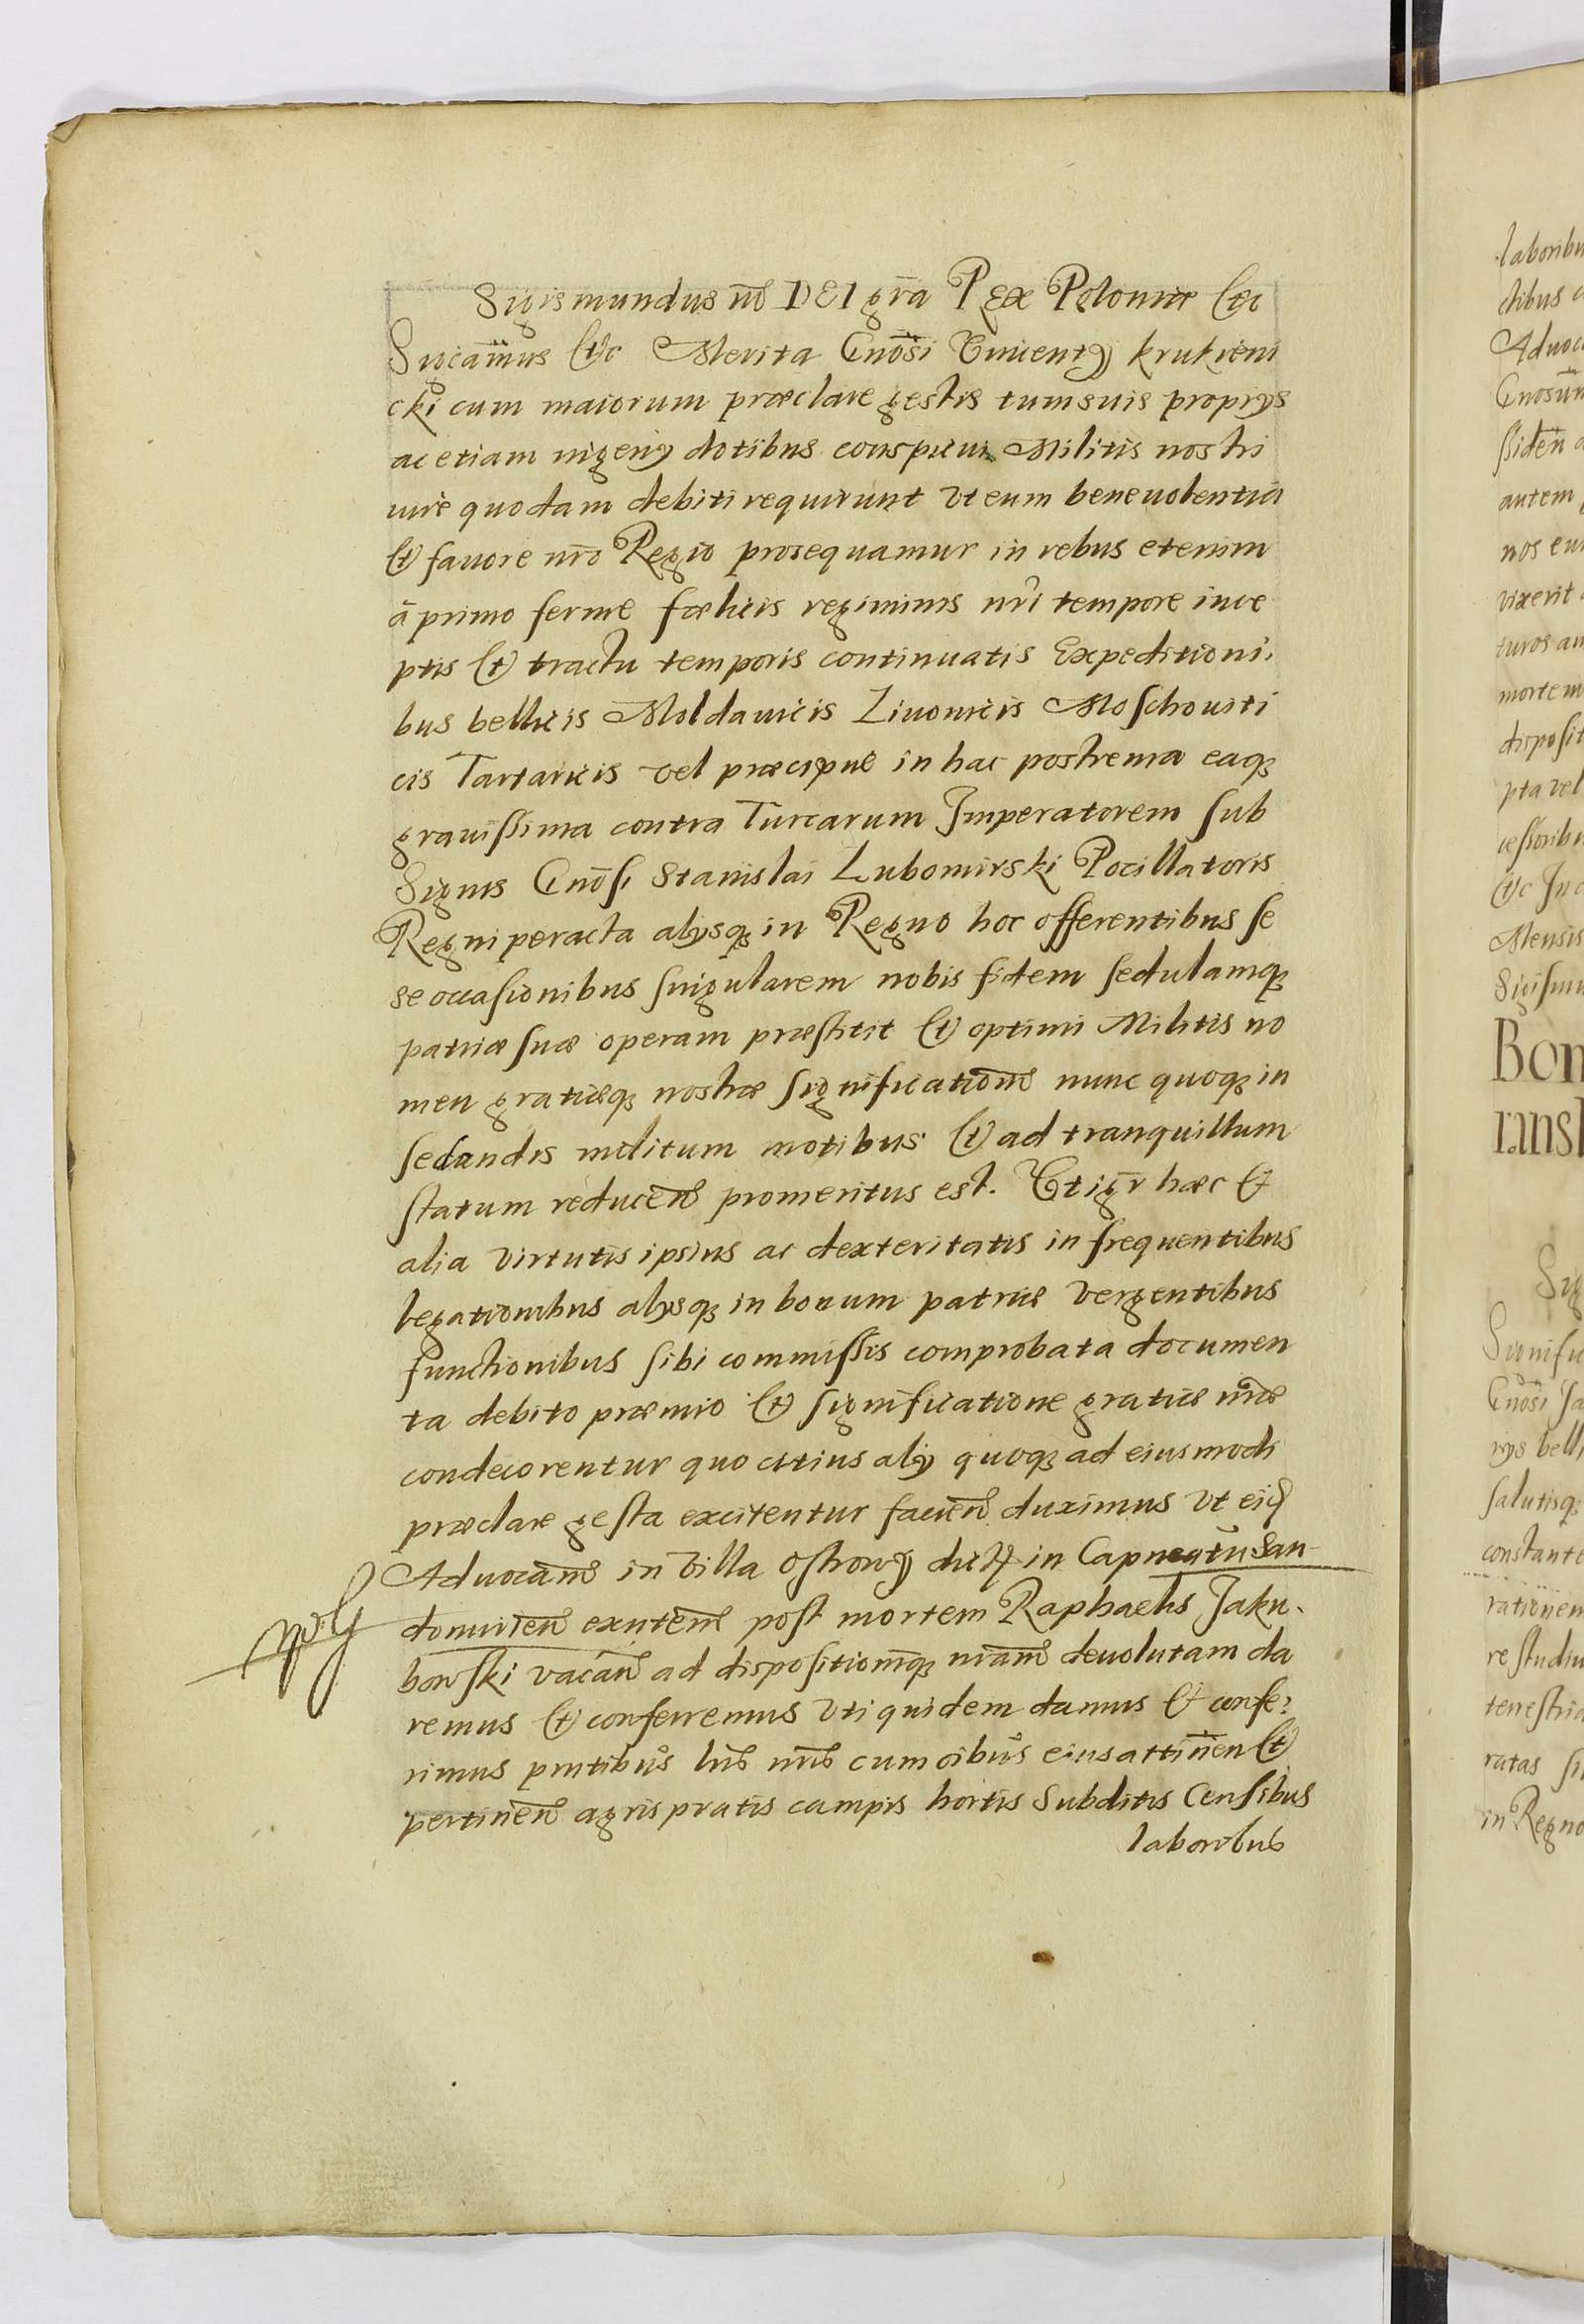 Sigismundus III DEI gr̃a Rex Poloniæ &c
Significamus &c Merita Gnõsi Vincentÿ Krukieni
cki cum maiorum præclare gestis tum suis proprÿs
ac etiam ingenÿ dotibus conspicui Militis nostri
iure quodam debiti requirunt vt eum beneuolentia
& fauore nr̃o Regio prosequamur in rebus etenim
a primo ferme fœlicis regiminis nr̃i tempore ince
ptis & tractu temporis continuatis Expeditioni,
bus bellicis Moldauicis Liuonicis Moschouiti
cis Tartaricis vel præcipue in hac postrema eaq3
grauissima contra Turcarum Imperatorem sub
Signis Gnõsi Stanislai Lubomirski Pocillatoris
Regni peracta alÿsq3 in Regno hoc offerentibus se
se occasionibus singularem nobis fidem sedulamq3
patriæ suæ operam præstitit & optimi Militis no
men gratiæq3 nostræ significationẽ nunc quoq3 in
sedandis militum motibus & ad tranquillum
statum reducen̄ promeritus est. Vt igr̃ hæc &
alia virtutis ipsius ac dexteritatis in frequentibus
legationibus alÿsq3 in bonum patriæ vergentibus
functionibus sibi commissis comprobata documen
ta debito præmio & significatione gratiæ nr̃æ
condecorentur quo citius alÿ quoq3 ad eiusmodi
præclare gesta excitentur facien̄ duximus vt eid̃
Aduocatiam in Villa Ostrow dict in Capneatu San
domirien̄ existen̄ post mortem Raphaelis Jaku,
bowski vacan̄ ad dispositionẽq3 nr̃am deuolutam da
remus & conferremus vti quidem damus & confe,
rimus pn̄tibus lr̃is nr̃is cum oĩbus eius attinen̄ &
pertinen̄ agris pratis campis hortis Subditis Censibus
laboribus
laboribu
Aduoc
autem
vixerit
turos
mortem
disposit
pta vel
Mensis
Bon
rans
Sig
Significa
Gnõsi Ja
salutisq3
constante
rationem
re studiu
terrestria
ratas
in Regno